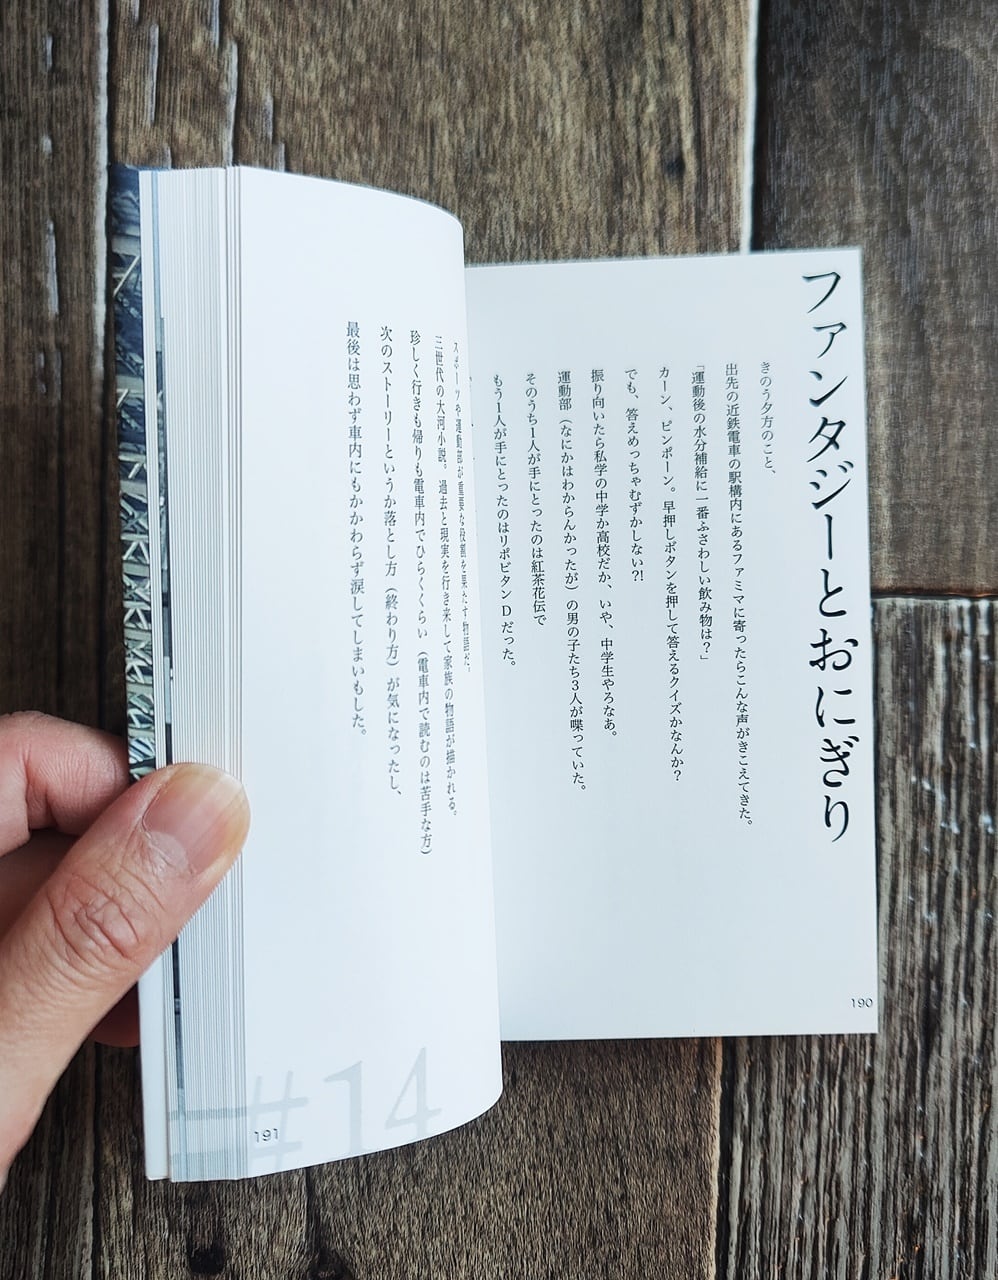 ファンタジーとおにぎり
きのう夕方のこと、
出先の近鉄電車の駅構内にあるファミマに寄ったらこんな声がきこえてきた。
「運動後の水分補給に一番ふさわしい飲み物は？」
カーン、ピンポーン。早押しボタンを押して答えるクイズかなんか？
でも、答えめっちゃむずかしない?!
振り向いたら私学の中学か高校だか、いや、中学生やろなあ。
運動部（なにかはわからんかったが）の男の子たち3人が喋っていた。
そのうち1人が手にとったのは紅茶花伝で
もう1人が手にとったのはリポビタンDだった。
190
スポーツや運動部が重要な役割を果たす物語だ。
三世代の大河小説。過去と現実を行き来して家族の物語が描かれる。
珍しく行きも帰りも電車内でひらくくらい（電車内で読むのは苦手な方）
次のストーリーというか落とし方（終わり方）が気になったし、
最後は思わず車内にもかかわらず涙してしまいもした。
#14
191